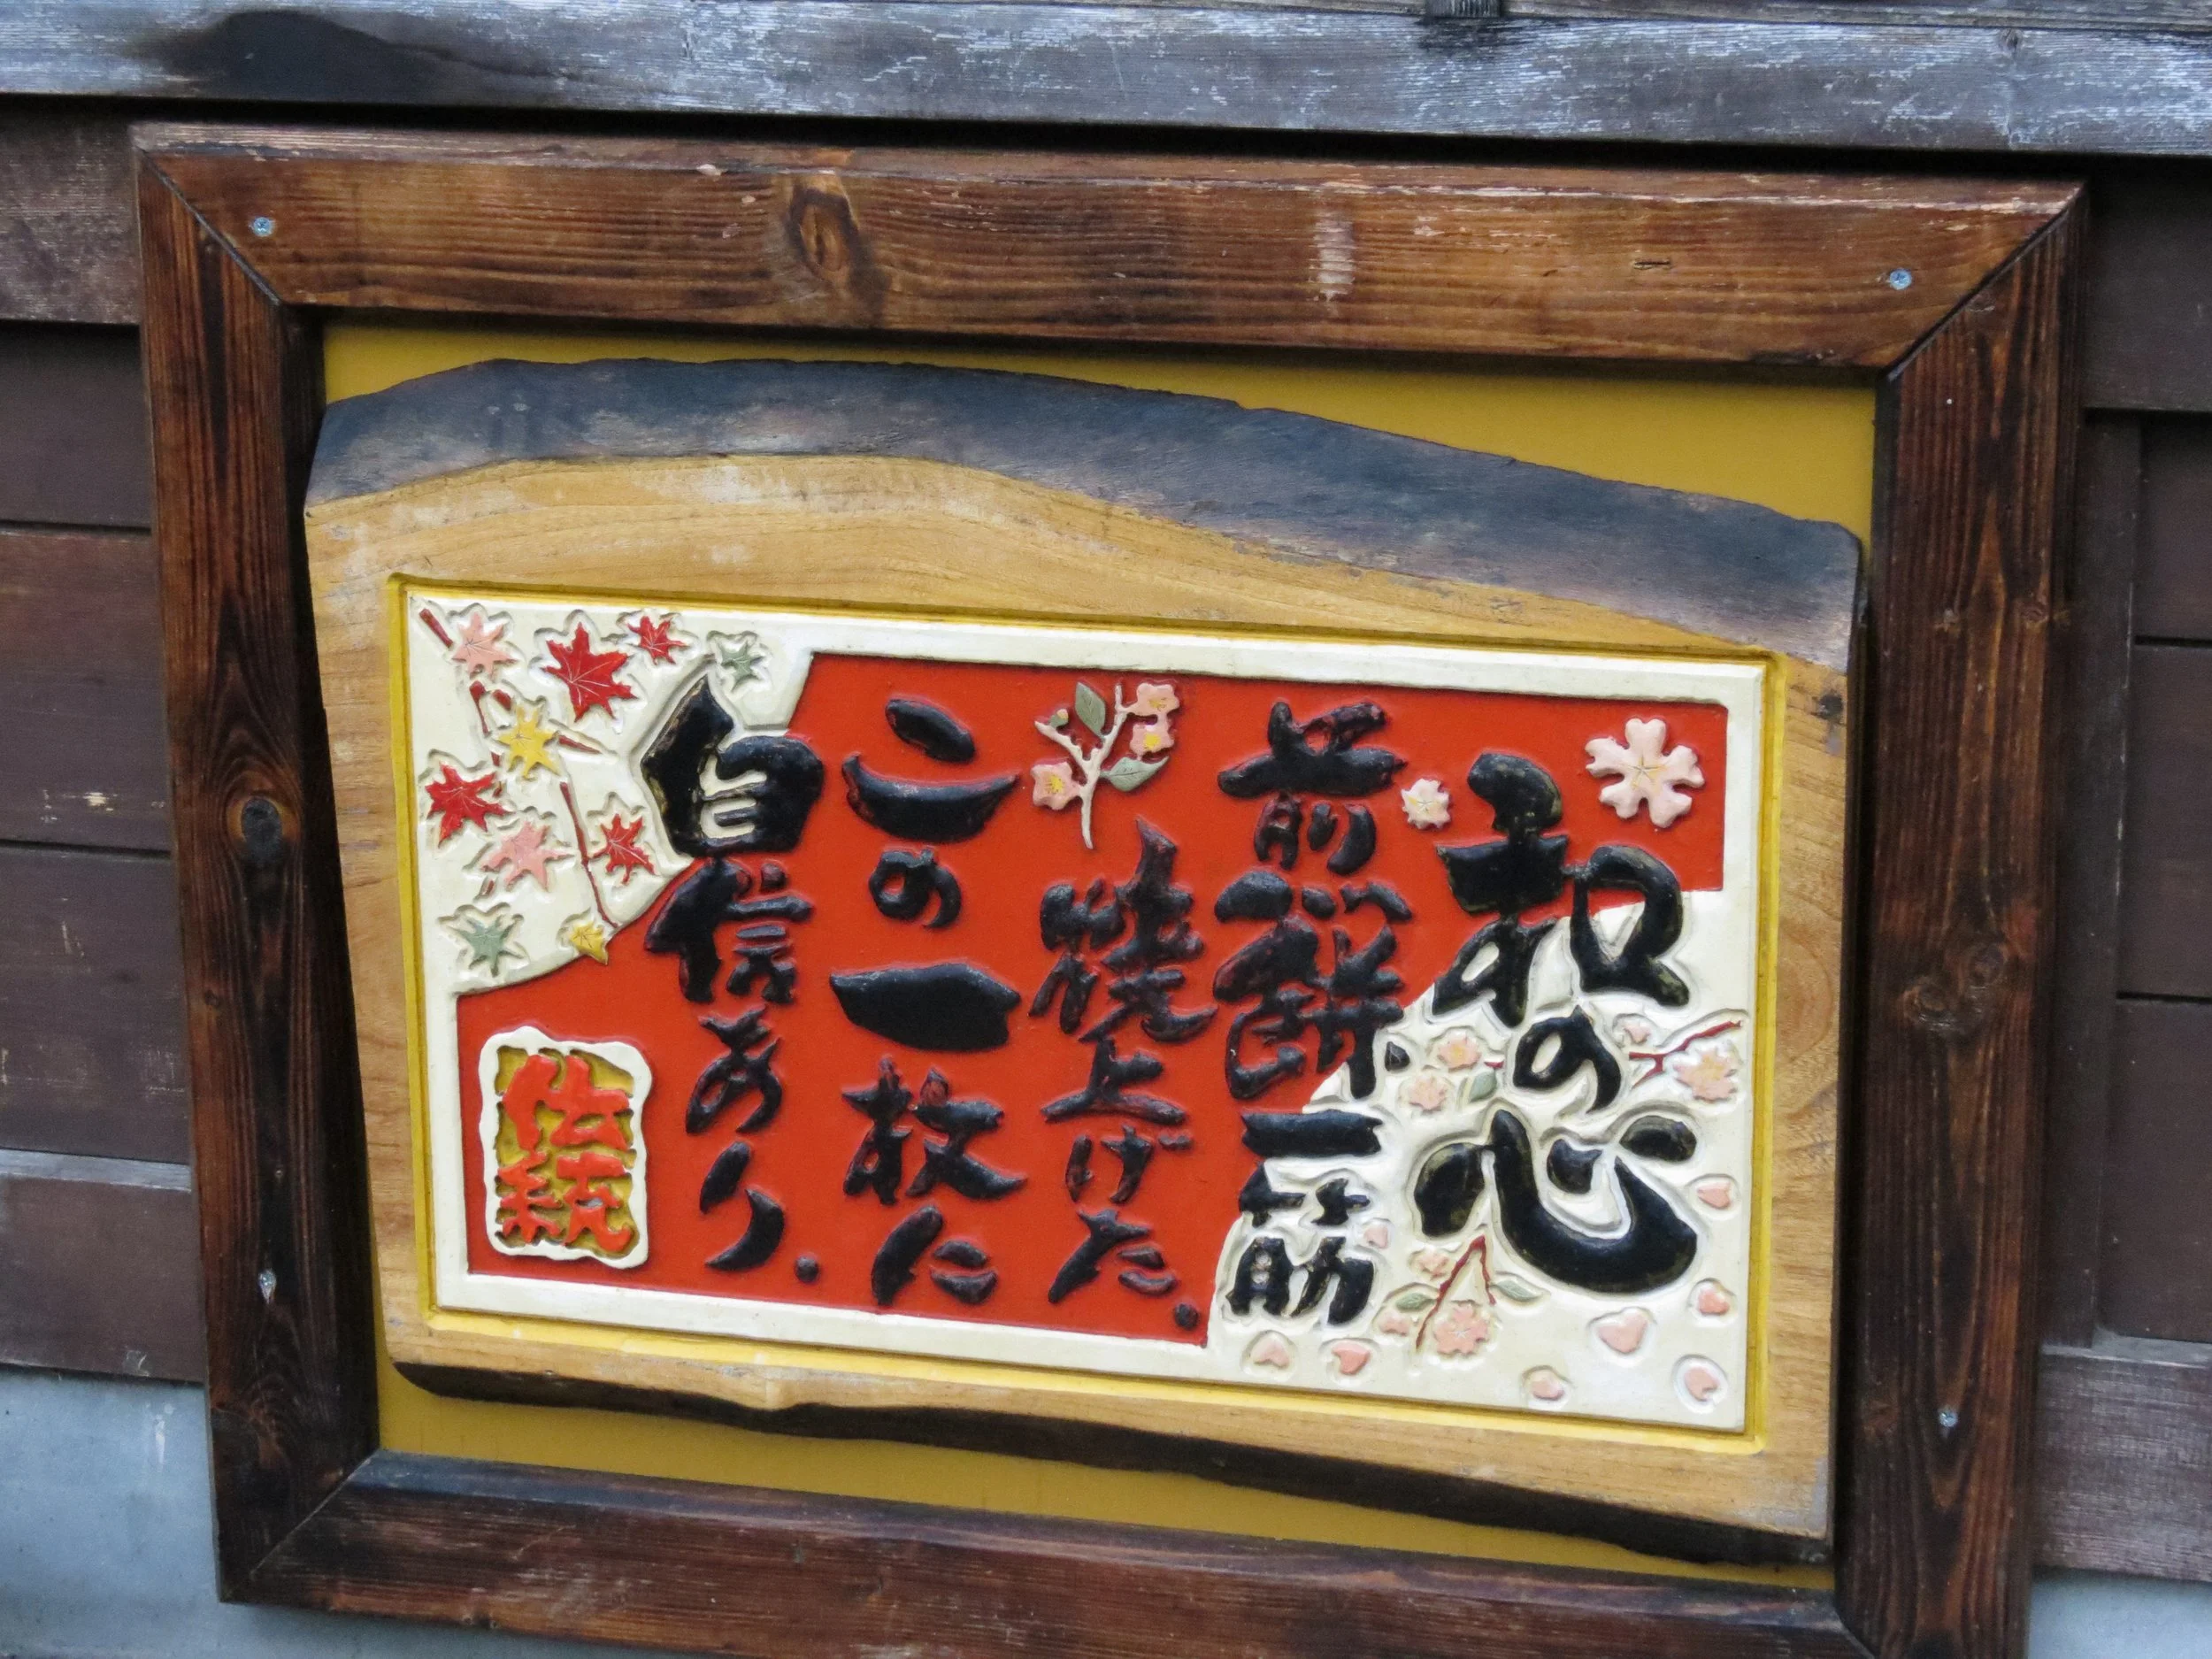 和の心
前餅一筋
焼上げた.
この一枚に
自信あり.
伝統